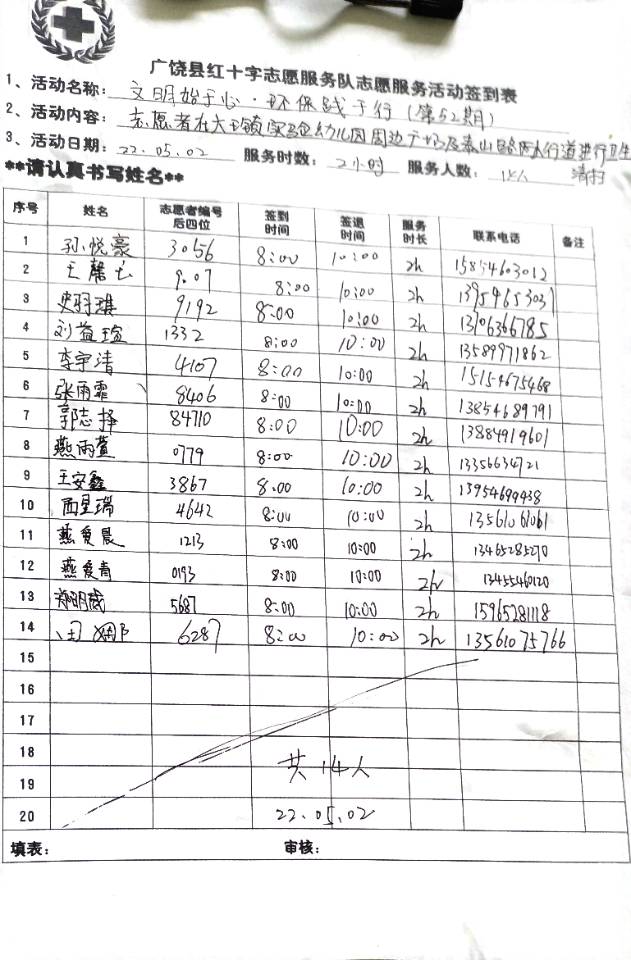 广饶县红十字志愿服务队志愿服务活动签到表
1、活动名称：文明始于心·环保践于行（第52期）
2、活动内容：志愿者在大王镇实验幼儿园周边广场及泰山路两人行道进行卫生
清扫
3、活动日期：22.05.02 服务时数：2小时 服务人数：14人
**请认真书写姓名**
序号 姓名 志愿者编号后四位 签到时间 签退时间 服务时长 联系电话 备注
1 孙悦豪 3056 8:00 10:00 2h 15854603012
2 王馨 8:00 10:00 2h 13954653031
3 9192 8:00 10:00 2h 13706366785
4 刘益瑄 1332 8:00 10:00 2h 13589971862
5 李宇清 4107 8:00 10:00 2h 15154675468
6 张雨霏 8406 8:00 10:00 2h 13854689791
7 郭志择 84710 8:00 10:00 2h 13884919601
8 燕雨萱 0779 8:00 10:00 2h 13356634721
9 王安鑫 3867 8:00 10:00 2h 13954699938
10 4642 8:00 10:00 2h 13561061061
11 燕复晨 1213 8:00 10:00 2h 13465285270
12 燕复青 0193 8:00 10:00 2h 13455460120
13 郑明威 5687 8:00 10:00 2h 15965281118
14 田娜 6287 8:00 10:00 2h 13561075766
15
16
17
18
共14人
19
20 22.05.02
填表： 审核：